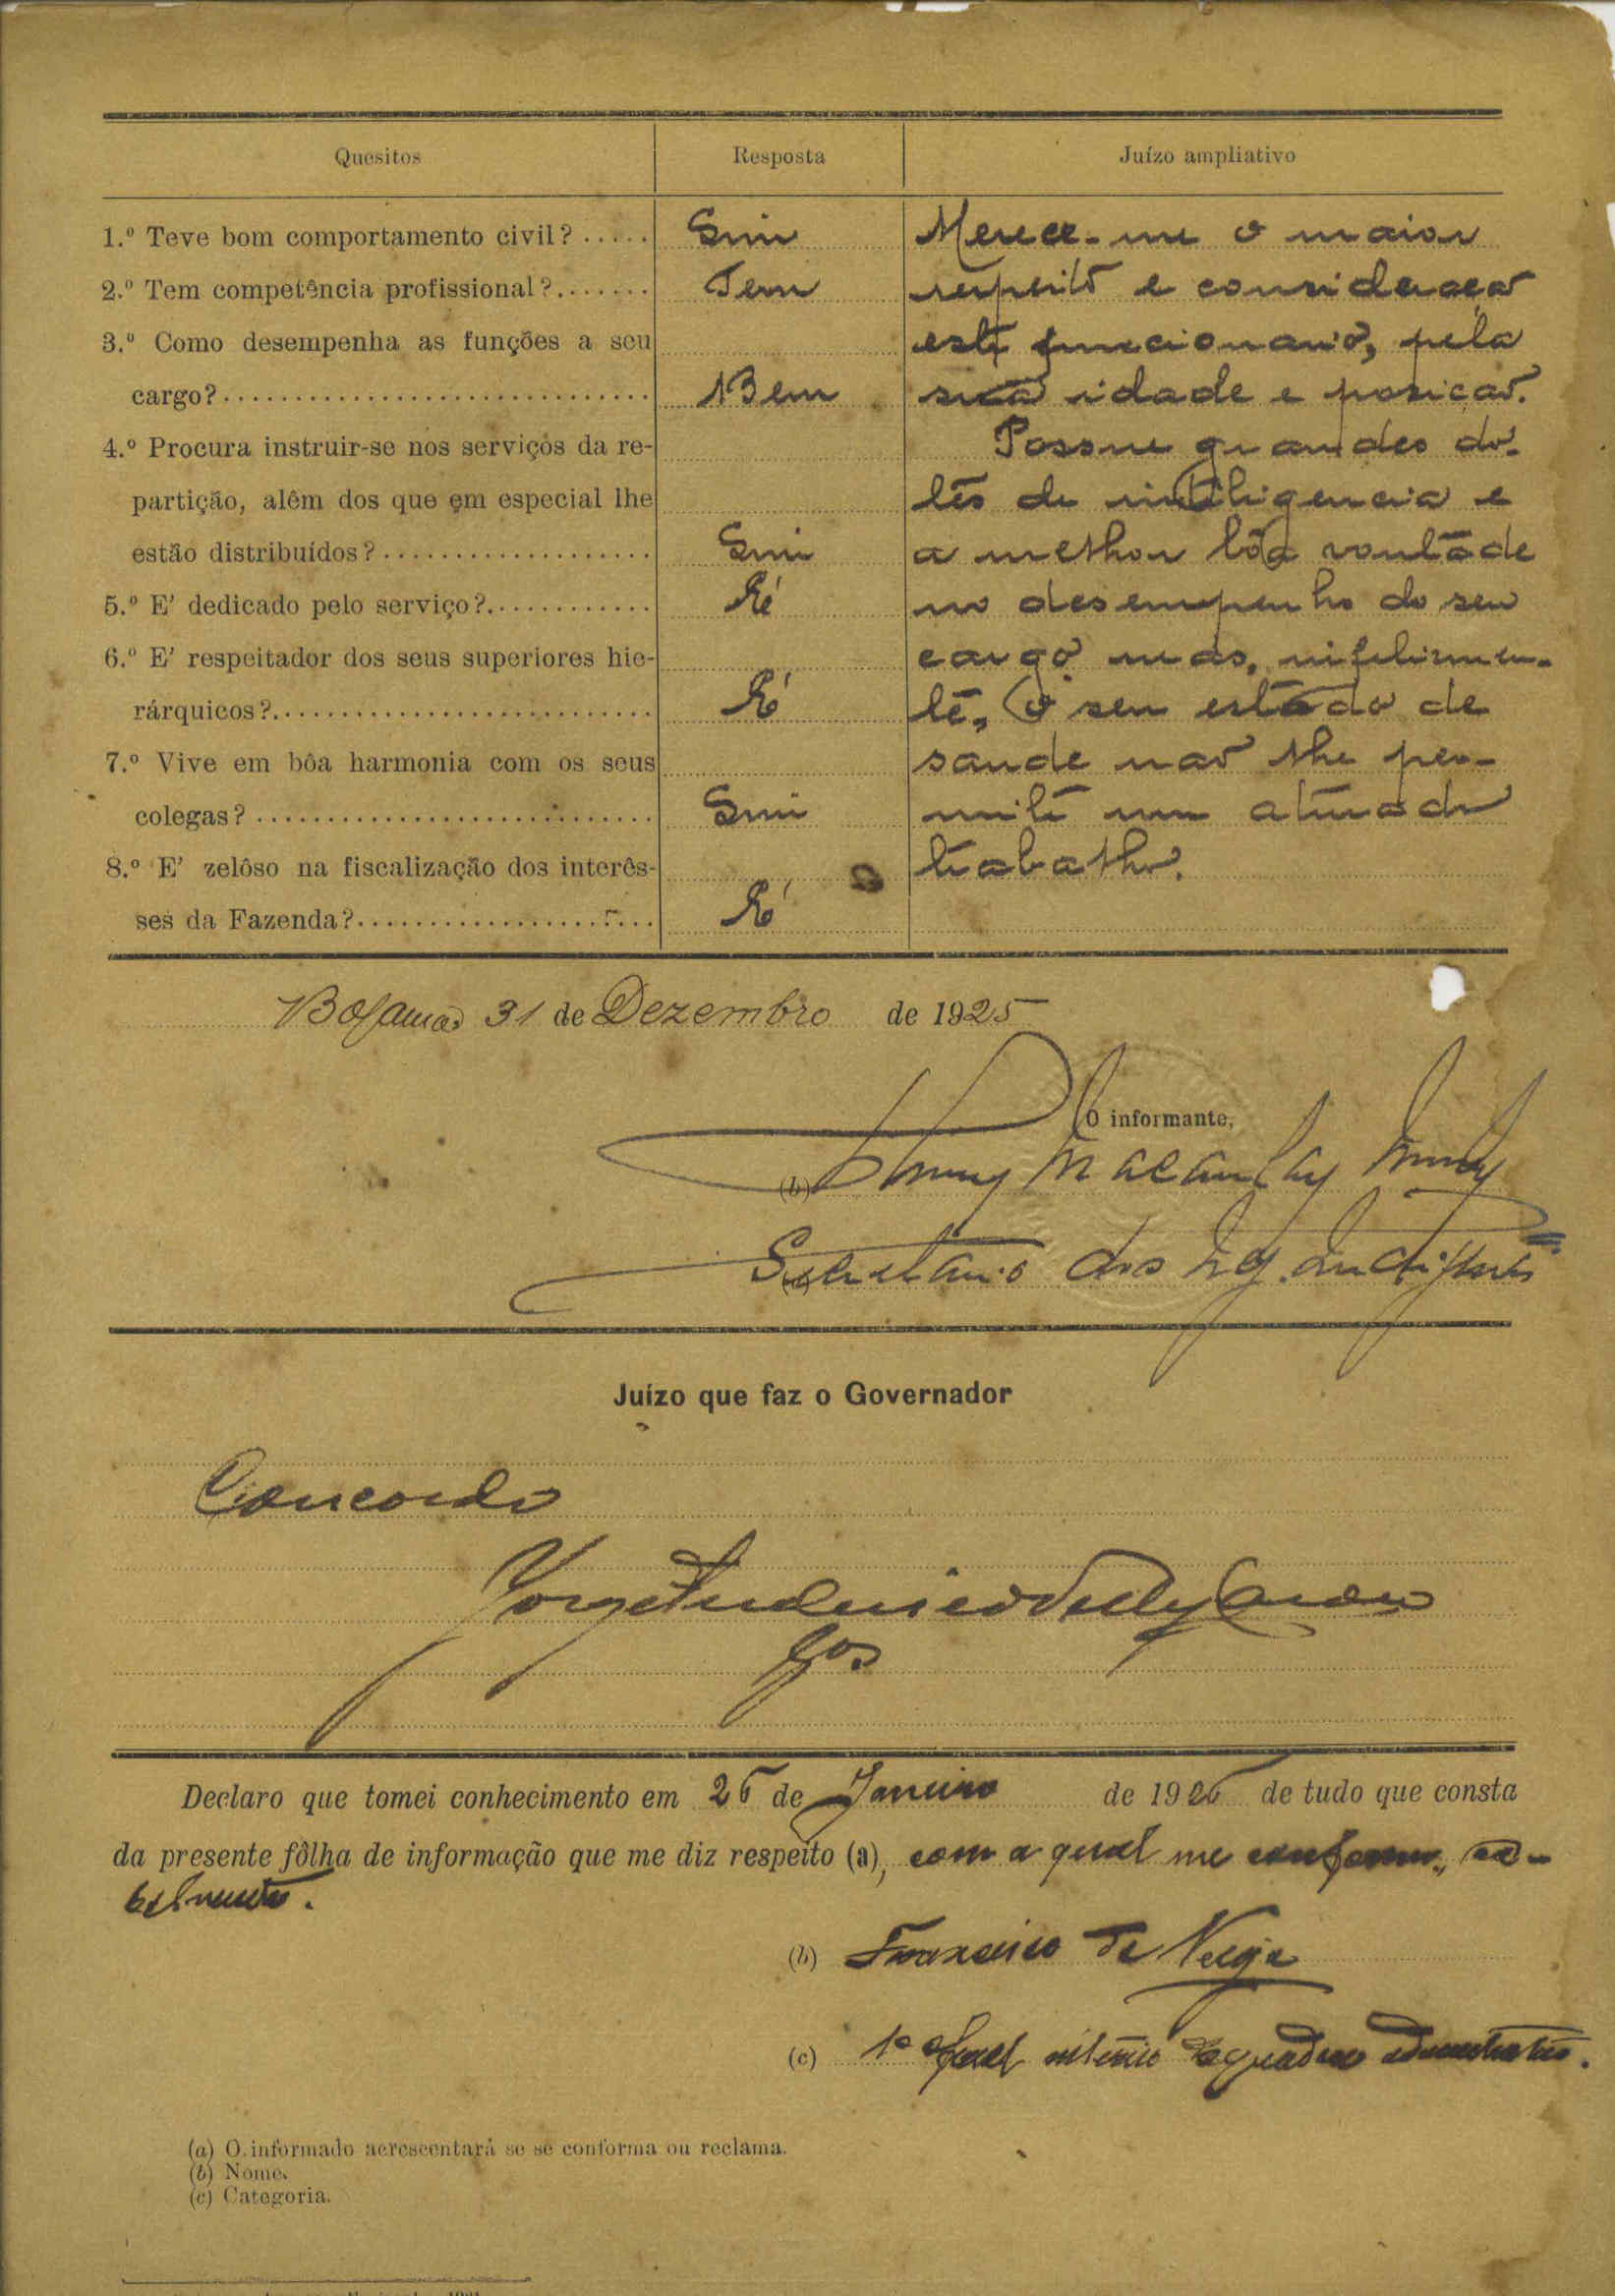 Quesitos Resposta Juízo ampliativo
1.º Teve bom comportamento civil? ..... Sim Merece-me o maior
2.º Tem competência profissional? ....... Tem respeito e consideração
3.º Como desempenha as funções a seu este funcionario, pela
cargo? .............................. Bem sua idade e posição.
4.º Procura instruir-se nos serviços da re- Possue grandes do-
partição, alêm dos que em especial lhe tes de inteligencia e
estão distribuídos? ................... Sim a melhor bôa vontade
5.º E' dedicado pelo serviço? ............ É no desempenho do seu
6.º E' respeitador dos seus superiores hie- cargo mas, infelizmen-
rárquicos? ........................... É te, o seu estado de
7.º Vive em bôa harmonia com os seus saude não lhe per-
colegas? ............................ Sim mite um aturado
8.º E' zelôso na fiscalização dos interês- trabalho.
ses da Fazenda? ..................... É
Bolama 31 de Dezembro de 1925
O informante,
(b) Macaulay
Secretario dos Neg. Indigenas
Juízo que faz o Governador
Concordo
Jorge Frederico Velez Caroço
Declaro que tomei conhecimento em 26 de Janeiro de 1926 de tudo que consta
da presente fôlha de informação que me diz respeito (a), com a qual me conformo,
(b) Francisco da Veiga
(c) 1º oficial interino do quadro administrativo.
(a) O informado acrescentará se se conforma ou reclama.
(b) Nome.
(c) Categoria.